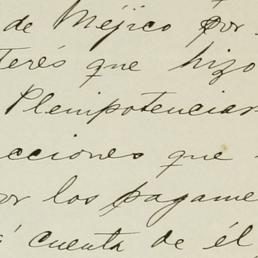 de Méjico por
terés que hizo
Plenipotenciar
cciones que
or los pagame
á cuenta de él